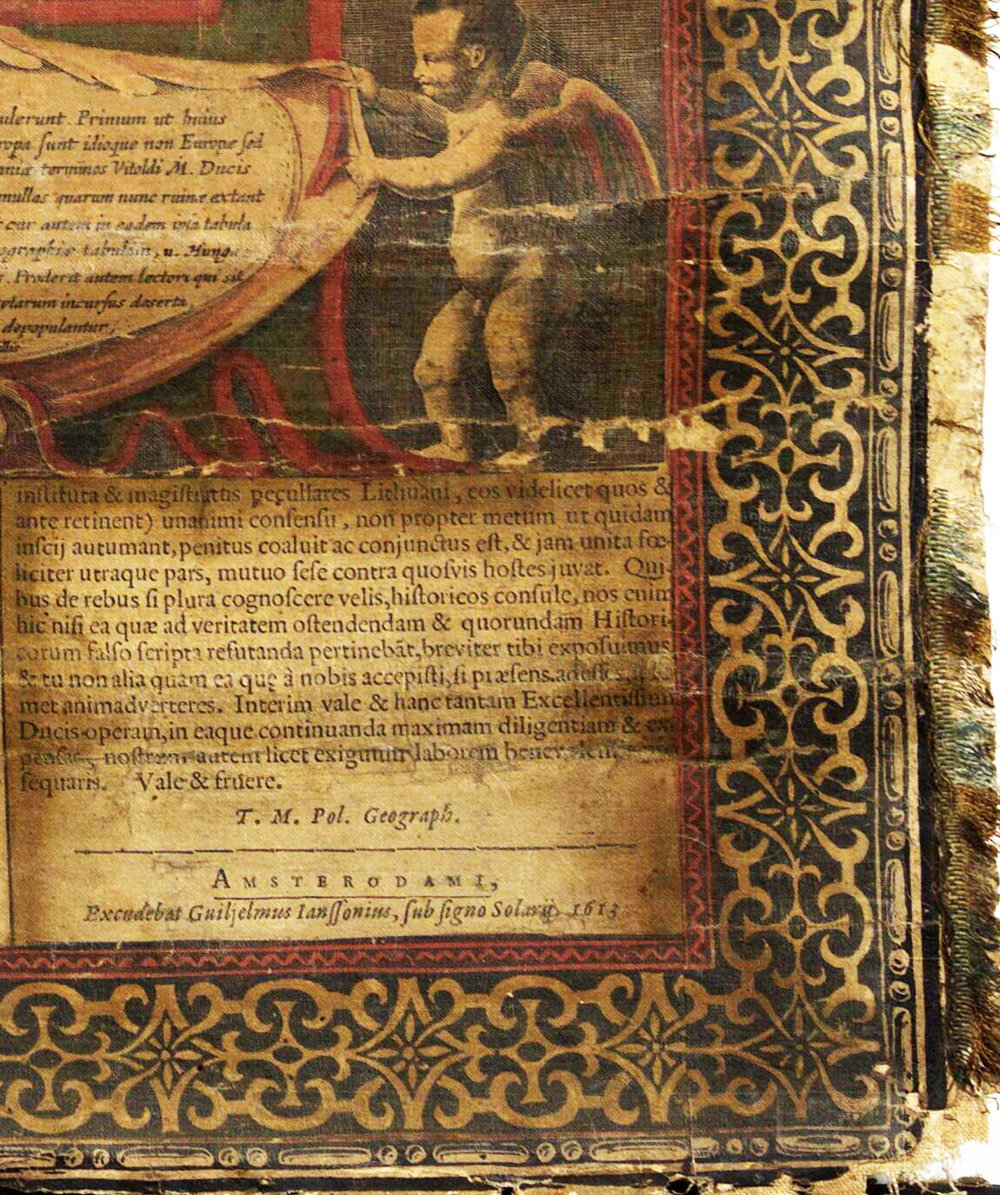 ulerunt. Primum ut huius
ropa ſunt idioque non Europæ ſed
aniæ terminos Vitoldi M. Ducis
nullas quarum nunc ruinæ extant
cur autem in eadem ipſa tabula
ographiæ tabulam, u. Hunga
s. Proderit autem lectori qui sit
rtarum incurſus deserta
depopulantur,
inſtituta & magiſtratus peçullares Lithuani, eos videlicet quos &
ante retinent) unanimi conſenſu, non propter metum ut quidam
inſcij autumant, penitus coaluit ac conjunctus eſt, & jam unita fœ-
liciter utraque pars, mutuo ſeſe contra quoſvis hoſtes juvat. Qui-
bus de rebus ſi plura cognoſcere velis, hiſtoricos conſule, nos enim
hic niſi ea quæ ad veritatem oſtendendam & quorundam Hiſtori-
corum falſo ſcripta refutanda pertinebāt, breviter tibi expoſuimus
& tu non alia quam ea quę à nobis accepiſti, ſi præſens adeſſes,
met animadverteres. Interim vale & hanc tantam Excellentiſſimi
Ducis operam, in eaque continuanda maximam diligentiam & ex-
penſas, noſtrum autem licet exiguum laborem
ſequaris. Vale & fruere.
T. M. Pol. Geograph.
AMSTERODAMI,
Excudebat Guiljelmus Ianſſonius, ſub ſigno Solarij 1613